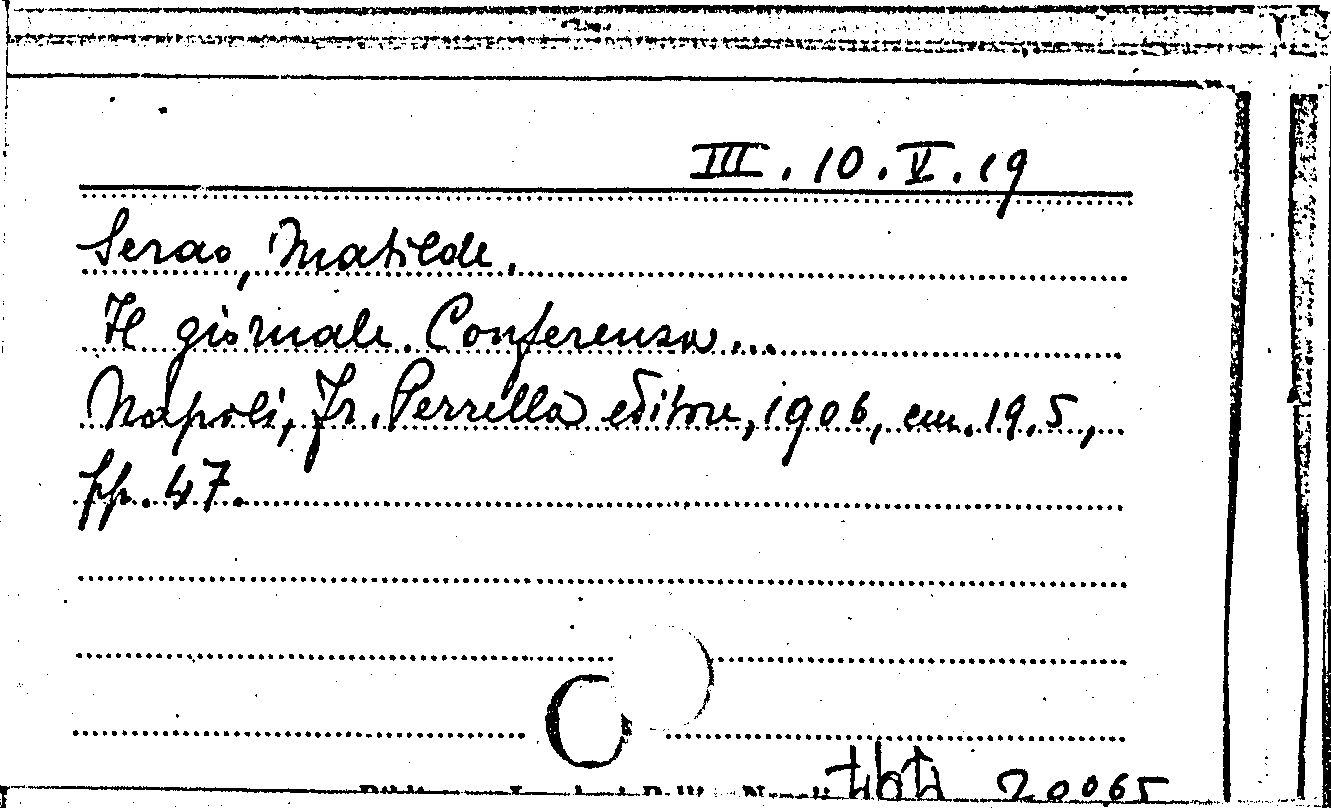 III.10.V.19
Serao, Matilde.
Il giornale. Conferenza...
Napoli, Fr. Perrella editore, 1906, cm. 19,5,
pp. 47.
C
20065